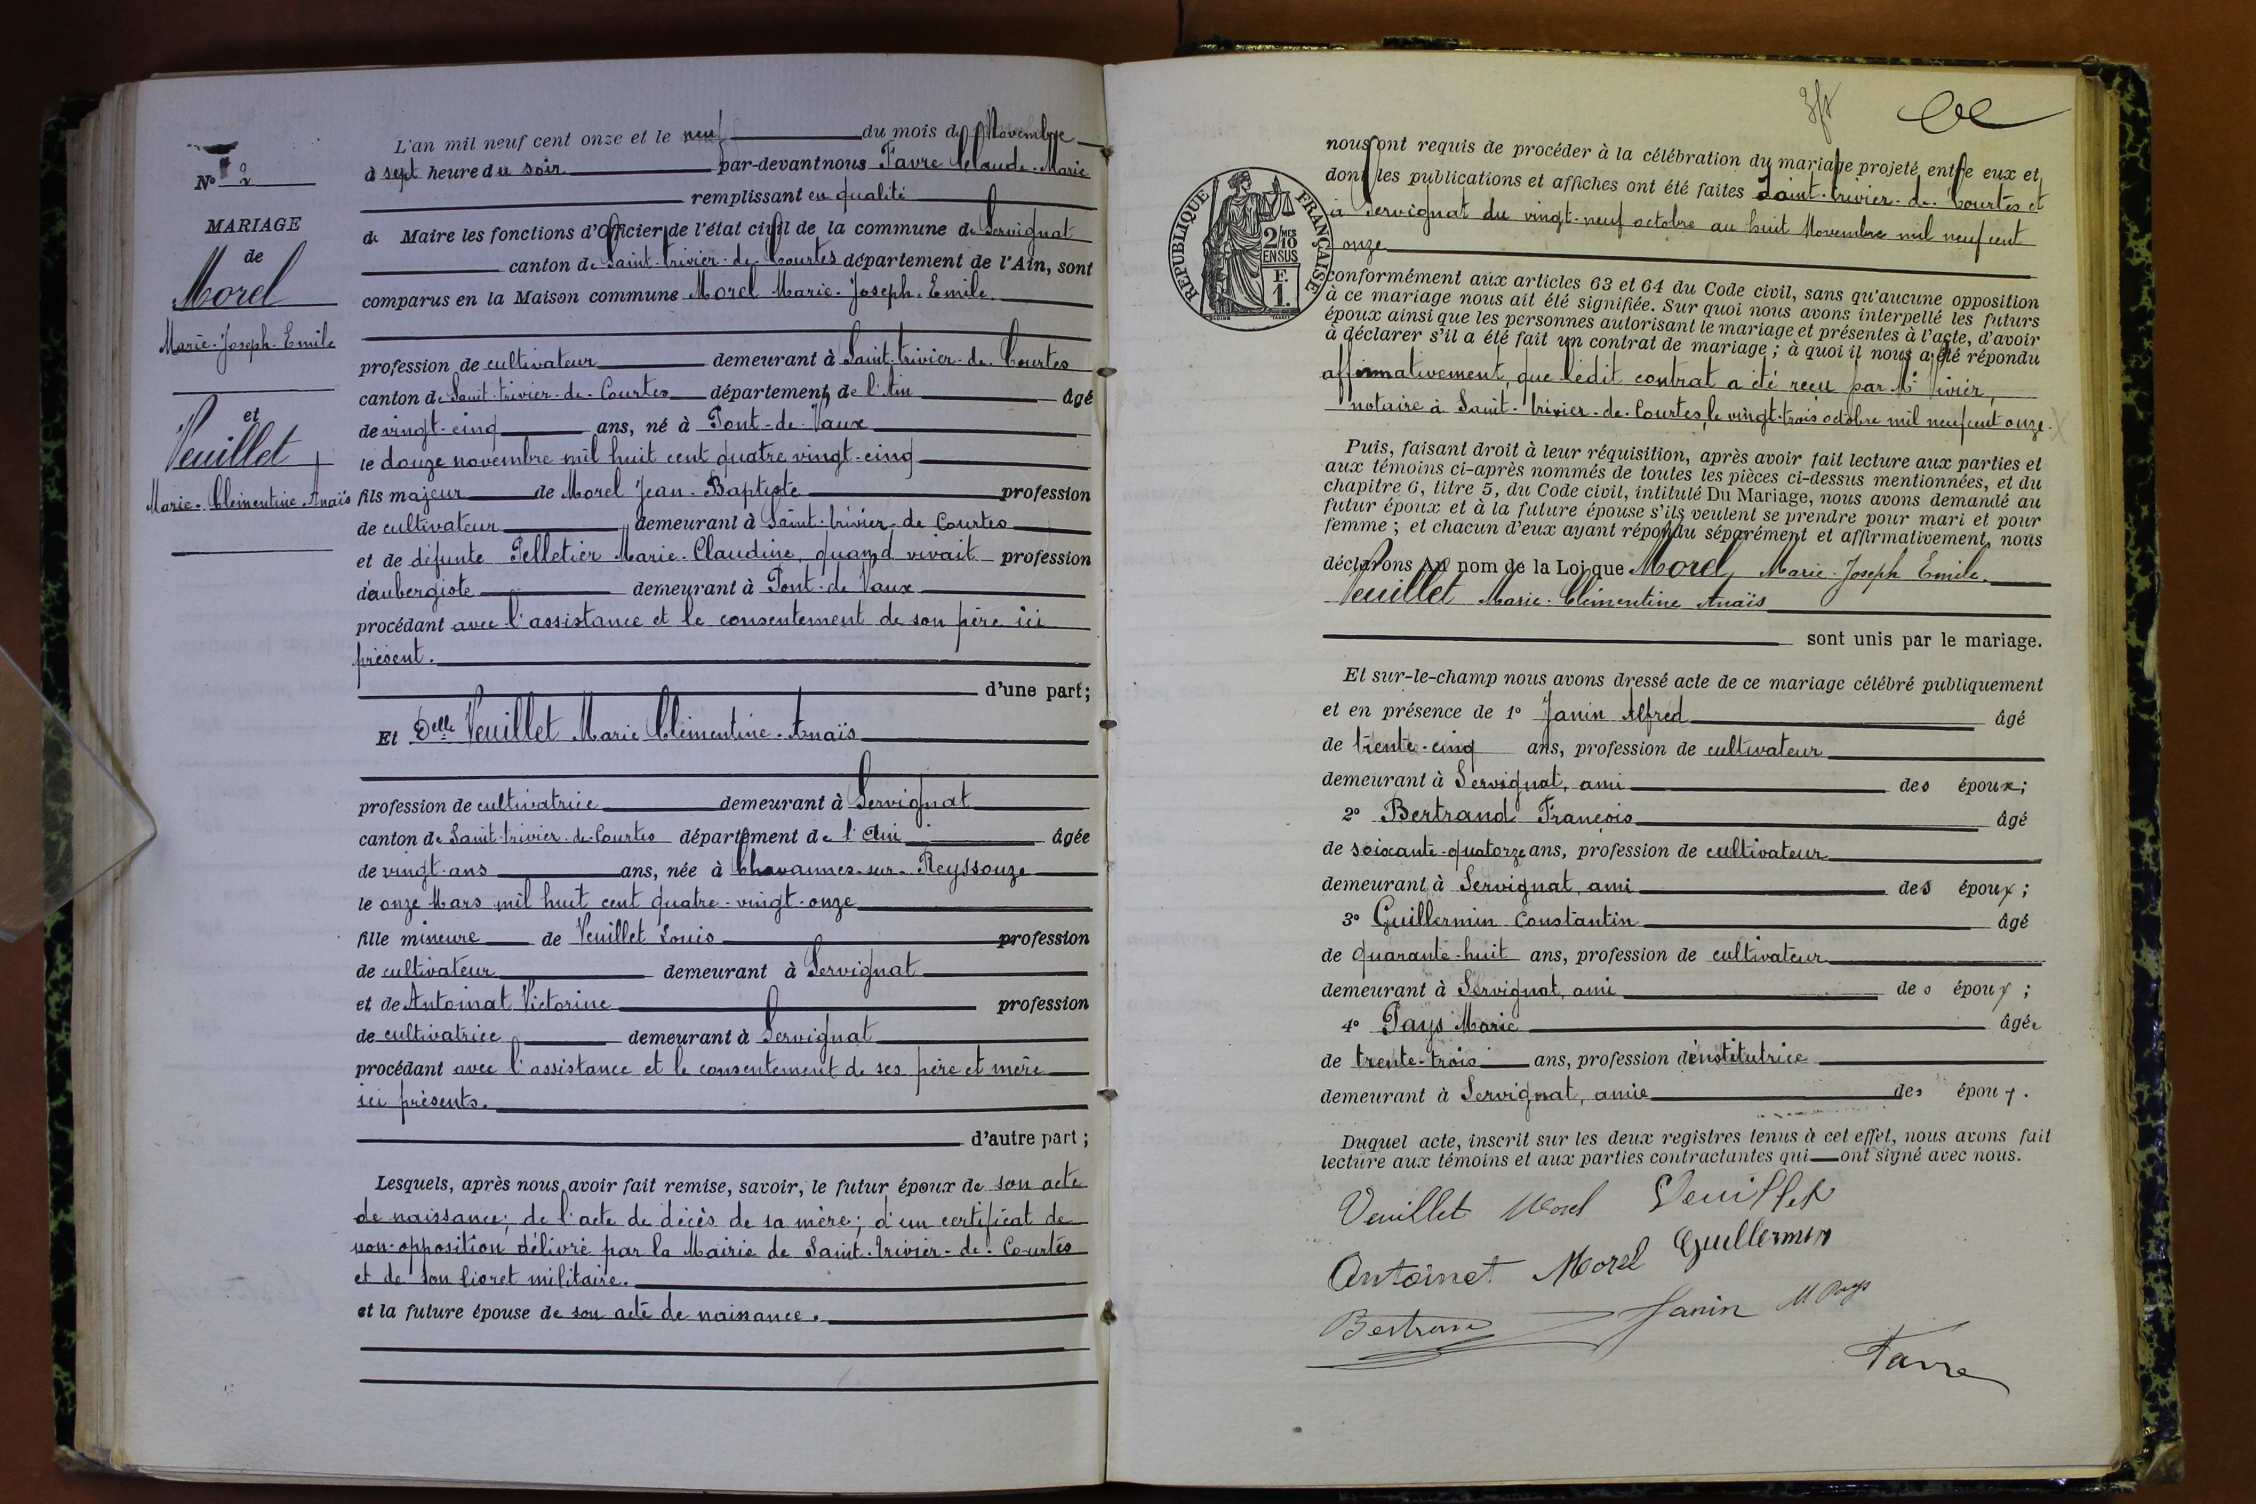 N° 2
MARIAGE
de
Morel
Marie-Joseph-Emile
et
Veuillet
Marie-Clémentine-Anaïs
L'an mil neuf cent onze et le neuf du mois de Novembre
à sept heure du soir par-devant nous Favre Claude-Marie
remplissant en qualité
de Maire les fonctions d'Officier de l'état civil de la commune de Servignat
canton de Saint-trivier-de-Courtes département de l'Ain, sont
comparus en la Maison commune Morel Marie-Joseph-Emile
profession de cultivateur demeurant à Saint-trivier-de-Courtes
canton de Saint-trivier-de-Courtes département de l'Ain âgé
de vingt-cinq ans, né à Pont-de-Vaux
le douze novembre mil huit cent quatre vingt-cinq
fils majeur de Morel Jean-Baptiste profession
de cultivateur demeurant à Saint-trivier-de Courtes
et de défunte Pelletier Marie-Claudine, quand vivait profession
d'aubergiste demeurant à Pont-de Vaux
procédant avec l'assistance et le consentement de son père ici
présent.
d'une part;
Et Delle Veuillet Marie Clémentine-Anaïs
profession de cultivatrice demeurant à Servignat
canton de Saint-trivier-de-Courtes département de l'Ain âgée
de vingt-ans ans, née à Chavannes-sur-Reyssouze
le onze Mars mil huit cent quatre-vingt-onze
fille mineure de Veuillet Louis profession
de cultivateur demeurant à Servignat
et de Antoinat Victorine profession
de cultivatrice demeurant à Servignat
procédant avec l'assistance et le consentement de ses père et mère
ici présents.
d'autre part;
Lesquels, après nous avoir fait remise, savoir, le futur époux de son acte
de naissance; de l'acte de décès de sa mère; d'un certificat de
non-opposition délivré par la Mairie de Saint-trivier-de-Courtes
et de son livret militaire.
et la future épouse de son acte de naissance.
RÉPUBLIQUE FRANÇAISE
2/10 MES
EN SUS
F.
1.
nous ont requis de procéder à la célébration du mariage projeté entre eux et
dont les publications et affiches ont été faites Saint-trivier-de-Courtes et
à Servignat du vingt-neuf octobre au huit Novembre mil neuf cent
onze
conformément aux articles 63 et 64 du Code civil, sans qu'aucune opposition
à ce mariage nous ait été signifiée. Sur quoi nous avons interpellé les futurs
époux ainsi que les personnes autorisant le mariage et présentes à l'acte, d'avoir
à déclarer s'il a été fait un contrat de mariage; à quoi il nous a été répondu
affirmativement, que ledit contrat a été reçu par Me Vivier,
notaire à Saint-trivier-de-Courtes, le vingt-trois octobre mil neuf cent onze.
Puis, faisant droit à leur réquisition, après avoir fait lecture aux parties et
aux témoins ci-après nommés de toutes les pièces ci-dessus mentionnées, et du
chapitre 6, titre 5, du Code civil, intitulé Du Mariage, nous avons demandé au
futur époux et à la future épouse s'ils veulent se prendre pour mari et pour
femme; et chacun d'eux ayant répondu séparément et affirmativement, nous
déclarons au nom de la Loi que Morel, Marie-Joseph Emile
Veuillet Marie-Clémentine Anaïs
sont unis par le mariage.
Et sur-le-champ nous avons dressé acte de ce mariage célébré publiquement
et en présence de 1° Janin Alfred âgé
de trente-cinq ans, profession de cultivateur
demeurant à Servignat, ami des époux;
2° Bertrand François âgé
de soixante-quatorze ans, profession de cultivateur
demeurant à Servignat, ami des époux;
3° Guillermin Constantin âgé
de quarante-huit ans, profession de cultivateur
demeurant à Servignat, ami des époux;
4° Pays Marie âgée
de trente-trois ans, profession d'institutrice
demeurant à Servignat, amie des époux.
Duquel acte, inscrit sur les deux registres tenus à cet effet, nous avons fait
lecture aux témoins et aux parties contractantes qui ont signé avec nous.
Veuillet Morel Veuillet
Antoinet Morel Guillermin
Bertrand Janin M Pays
Favre